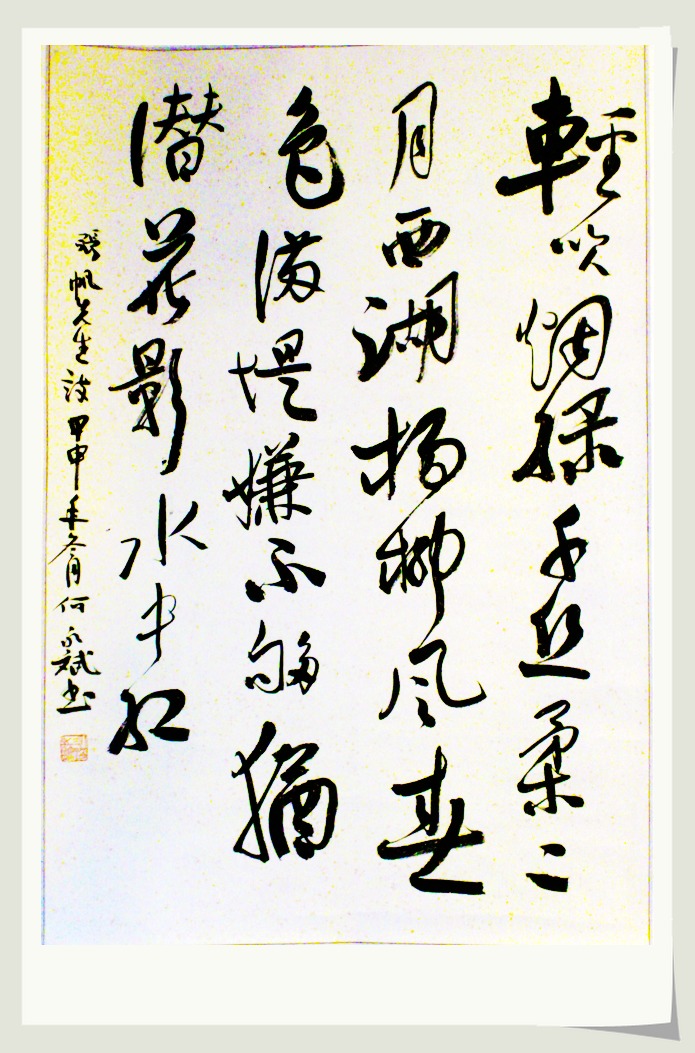 輕吹烟绿千丝柔二
月西湖杨柳风春
色满堤嫌不够猶
潜花影水中红
張帆先生诗甲申年冬月何永斌书